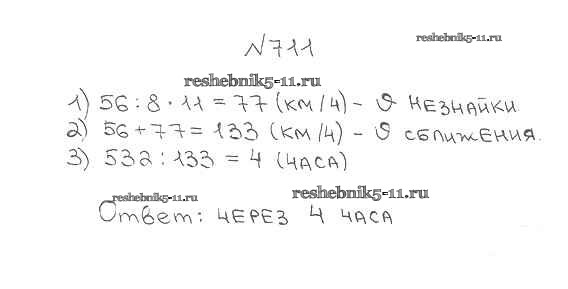 №711
reshebnik5-11.ru
reshebnik5-11.ru
1) 56 : 8 · 11 = 77 (км/ч) - υ незнайки.
2) 56 + 77 = 133 (км/ч) - υ сближения.
3) 532 : 133 = 4 (часа)
reshebnik5-11.ru
reshebnik5-11.ru
Ответ: через 4 часа